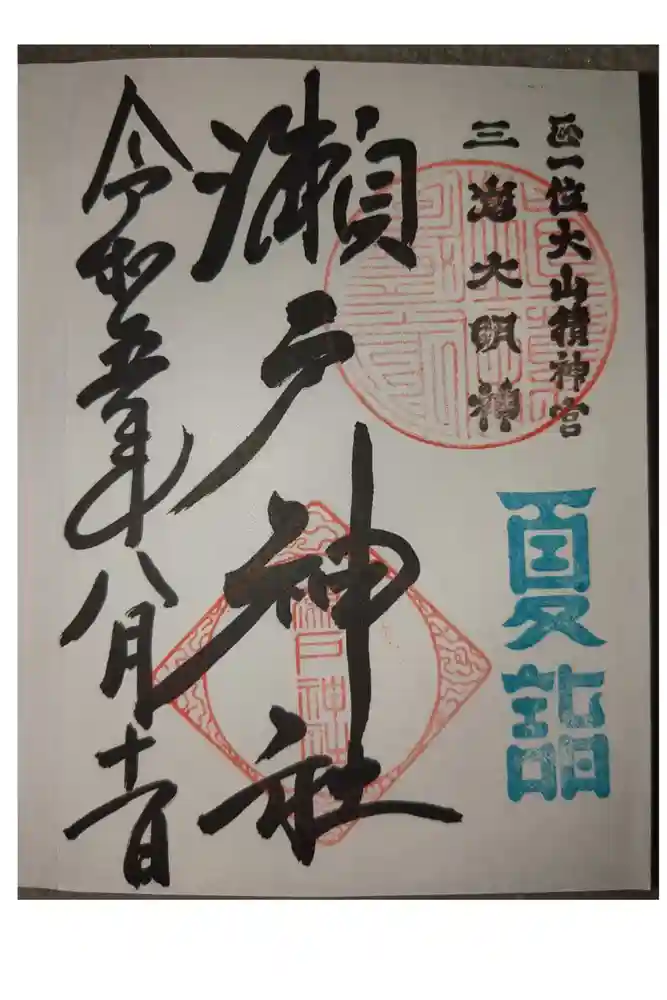 正一位大山積神宮
三嶌大明神
夏詣
瀨戸神社
瀬戸神社
令和五年八月十一日